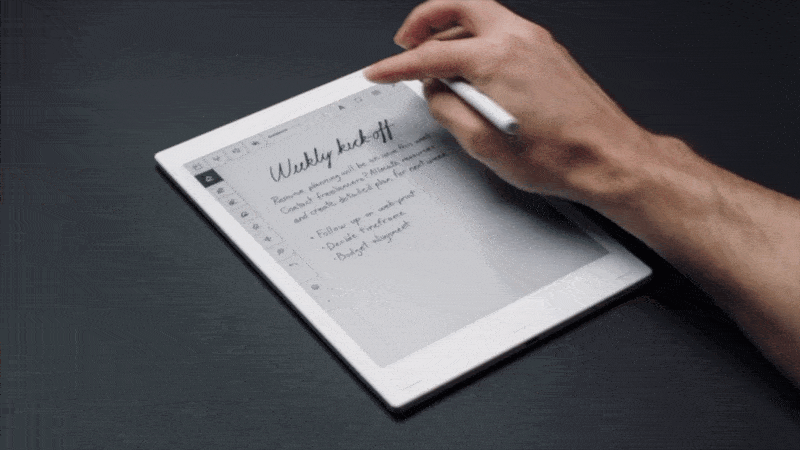 Weekly kick off
Resource planning will be an issue this week.
Contact freelancers? Allocate resources
and create detailed plan for next week.
• Follow up on web-proof
• Decide timeframe
• Budget alignment